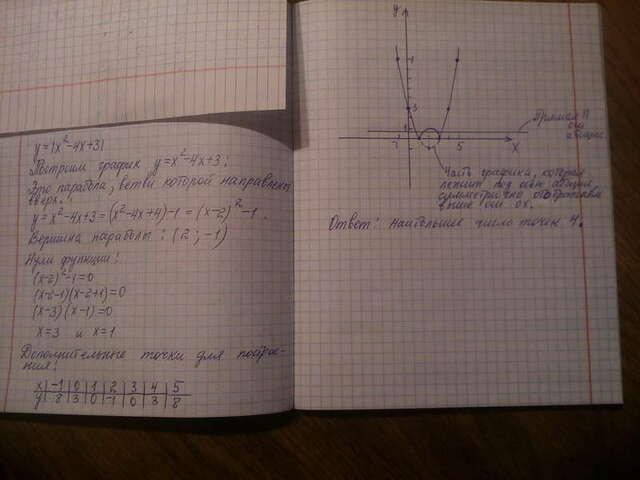 y=|x²-4x+3|
Построим график y=x²-4x+3:
Это парабола, ветви которой направлены
вверх.
y=x²-4x+3=(x²-4x+4)-1=(x-2)²-1.
Вершина параболы: (2;-1)
Нули функции:
(x-2)²-1=0
(x-2-1)(x-2+1)=0
(x-3)(x-1)=0
x=3 и x=1
Дополнительные точки для построе-
ния:
x -1 0 1 2 3 4 5
y 8 3 0 -1 0 3 8
y
3
1
-1 5 x
Прямая ||
оси
абсцисс.
Часть графика, которая
лежит под осью абсцисс,
симметрично отображаем
выше оси ox.
Ответ: наибольшее число точек 4.